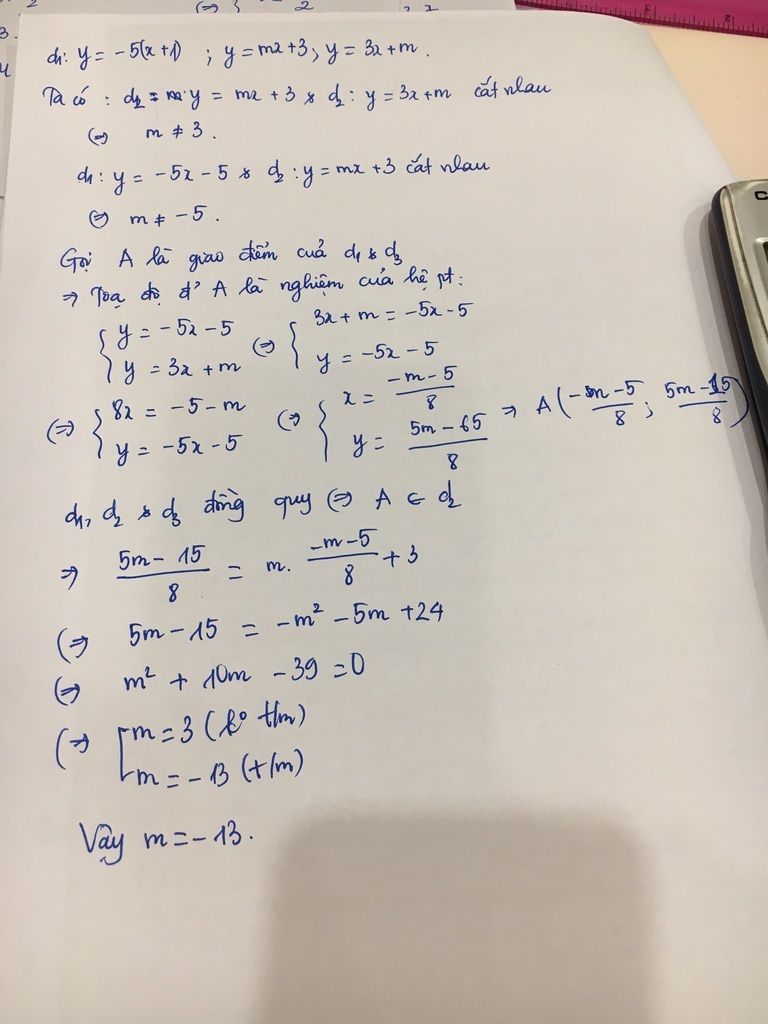 d₁: y = -5(x+1) ; y = mx+3, y = 3x+m.
Ta có : d₂ = m. y = mx + 3 & d₂ : y = 3x+m cắt nhau
(=) m ≠ 3.
d₁: y = -5x - 5 & d₂ : y = mx + 3 cắt nhau
(=) m ≠ -5.
Gọi A là giao điểm cuả d₁ & d₃
=> Toạ độ đ' A là nghiệm của hệ pt:
{ y = -5x - 5 (=) { 3x + m = -5x - 5
y = 3x + m y = -5x - 5
(=) { 8x = -5 - m (=) { x = (-m-5)/8
y = -5x - 5 y = (5m-65)/8 => A((-m-5)/8 ; (5m-15)/8)
d₁, d₂ & d₃ đồng quy (=) A ∈ d₂
=> (5m-15)/8 = m. (-m-5)/8 + 3
(=) 5m - 15 = -m² - 5m + 24
(=) m² + 10m - 39 = 0
(=) [ m = 3 (k° t/m)
m = -13 (t/m)
Vậy m = -13.